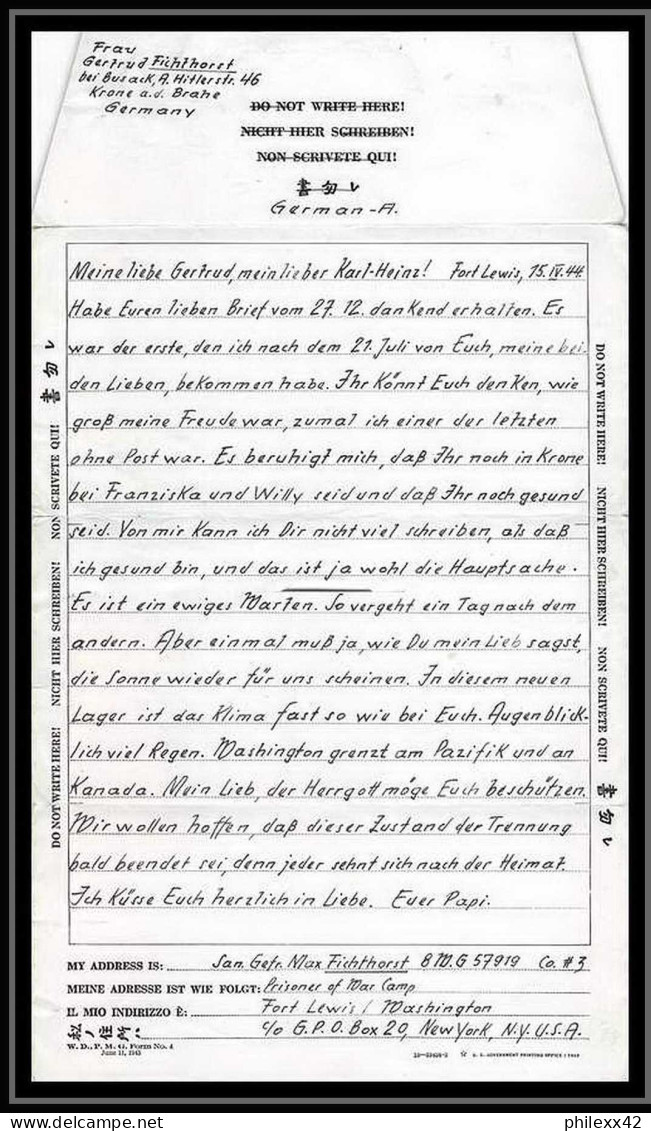 Frau
Gertrud Fichthorst
bei Busack, A. Hitlerstr. 46
Krone a.d. Brahe
Germany
DO NOT WRITE HERE!
NICHT HIER SCHREIBEN!
NON SCRIVETE QUI!
書勿レ
German-A.
Meine liebe Gertrud, mein lieber Karl-Heinz! Fort Lewis, 15.IV.44
Habe Euren lieben Brief vom 27.12. dankend erhalten. Es
war der erste, den ich nach dem 21. Juli von Euch, meine bei-
den Lieben, bekommen habe. Ihr könnt Euch denken, wie
groß meine Freude war, zumal ich einer der letzten
ohne Post war. Es beruhigt mich, daß Ihr noch in Krone
bei Franziska und Willy seid und daß Ihr noch gesund
seid. Von mir kann ich Dir nicht viel schreiben, als daß
ich gesund bin, und das ist ja wohl die Hauptsache.
Es ist ein ewiges Warten. So vergeht ein Tag nach dem
andern. Aber einmal muß ja, wie Du mein Lieb sagst,
die Sonne wieder für uns scheinen. In diesem neuen
Lager ist das Klima fast so wie bei Euch. Augenblick-
lich viel Regen. Washington grenzt am Pazifik und an
Kanada. Mein Lieb, der Herrgott möge Euch beschützen.
Wir wollen hoffen, daß dieser Zustand der Trennung
bald beendet sei, denn jeder sehnt sich nach der Heimat.
Ich küsse Euch herzlich in Liebe. Euer Papi.
DO NOT WRITE HERE! NICHT HIER SCHREIBEN! NON SCRIVETE QUI! 書勿レ
DO NOT WRITE HERE! NICHT HIER SCHREIBEN! NON SCRIVETE QUI! 書勿レ
MY ADDRESS IS: San. Gefr. Max Fichthorst 8 W.G 57919 Co. #3
MEINE ADRESSE IST WIE FOLGT: Prisoner of War Camp
IL MIO INDIRIZZO È: Fort Lewis / Washington
私ノ住所ハ c/o G.P.O. Box 20, New York, N.Y. U.S.A.
W. D., P. M. G. Form No. 4
June 11, 1943
☆ U. S. GOVERNMENT PRINTING OFFICE
philexx42